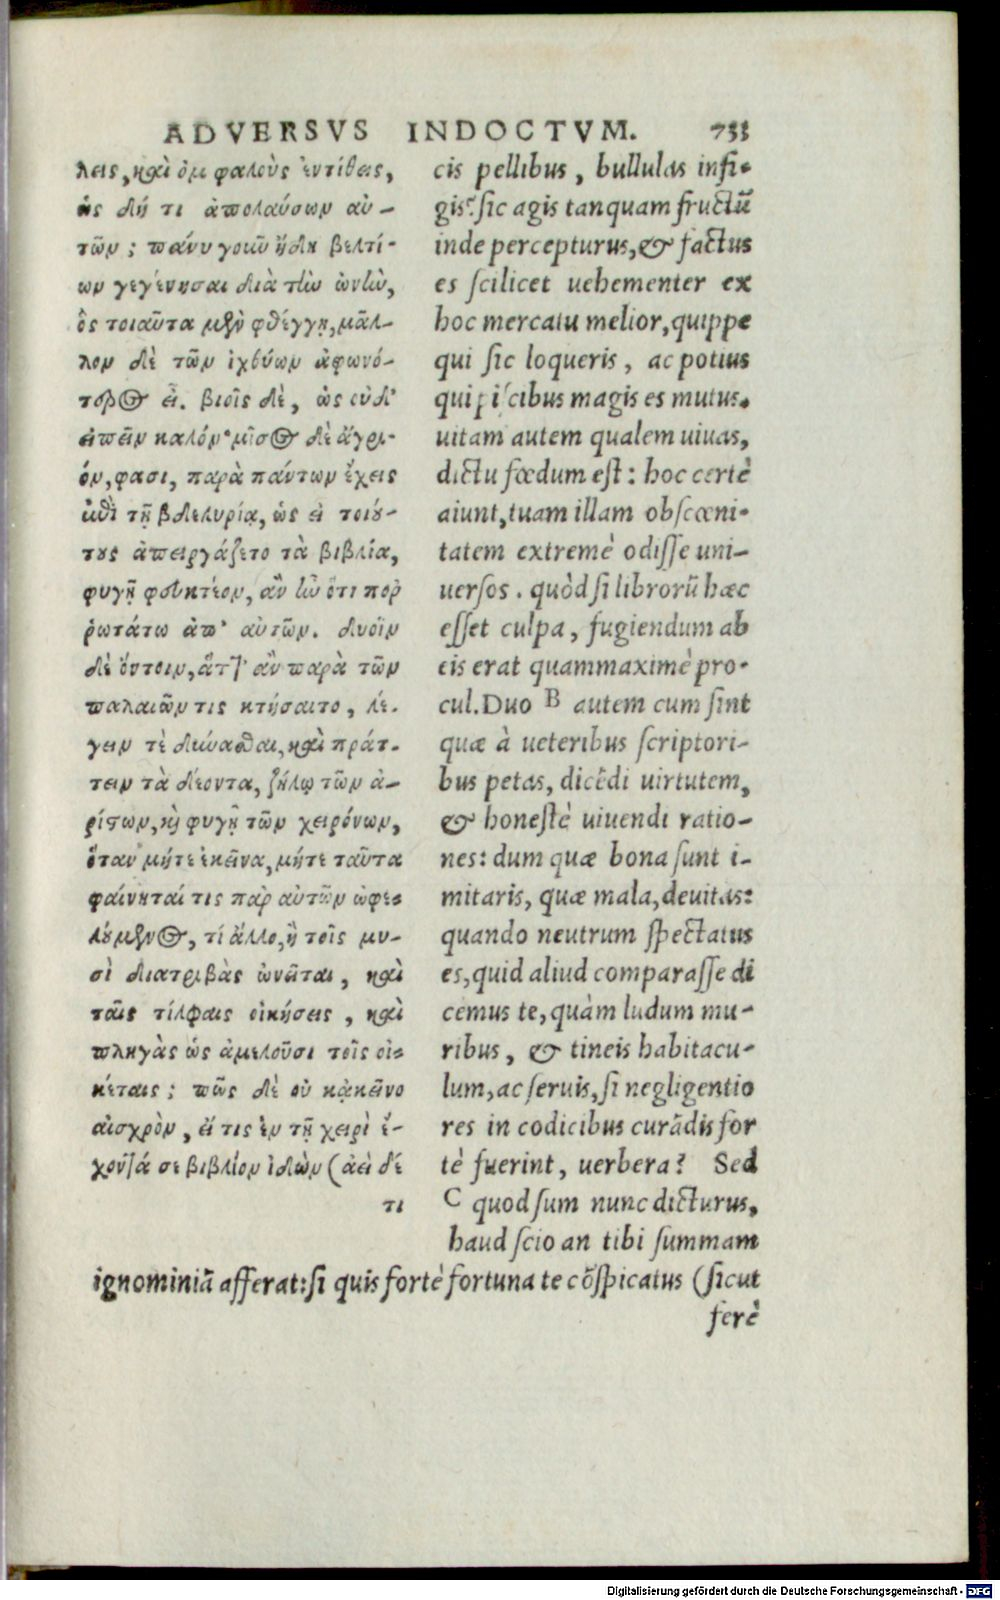 ADVERSVS INDOCTVM. 733
λεις, καὶ ὀμφαλοὺς ἐντίθεις,
ὡς δή τι ἀπολαύσων αὐ-
τῶν; πάνυ γοῦν ἤδη βελτί-
ων γεγένησαι διὰ τὴν ὠνὴν,
ὃς τοιαῦτα μὲν φθέγγῃ, μᾶλ-
λον δὲ τῶν ἰχθύων ἀφωνό-
τερος εἶ. βιοῖς δὲ, ὡς οὐδ'
εἰπεῖν καλόν· μῖσος δὲ ἄγρι-
όν, φασι, παρὰ πάντων ἔχεις
ἐπὶ τῇ βδελυρίᾳ, ὡς εἰ τοιού-
τους ἀπειργάζετο τὰ βιβλία,
φυγῇ φευκτέον, ἂν ἦν ὅτι πορ
ῥωτάτω ἀπ' αὐτῶν. δυοῖν
δὲ ὄντοιν, ἅττ' ἂν παρὰ τῶν
παλαιῶν τις κτήσαιτο, λέ-
γειν τὲ δύνασθαι, καὶ πράτ-
τειν τὰ δέοντα, ζήλῳ τῶν ἀ-
ρίστων, καὶ φυγῇ τῶν χειρόνων,
ὅταν μήτε ἐκεῖνα, μήτε ταῦτα
φαίνηταί τις παρ αὐτῶν ὠφε-
λούμενος, τί ἄλλο, ἢ τοῖς μυ-
σὶ διατριβὰς ὠνεῖται, καὶ
ταῖς τίλφαις οἰκήσεις, καὶ
πληγὰς ὡς ἀμελοῦσι τοῖς οἰ-
κέταις; πῶς δὲ οὐ κἀκεῖνο
αἰσχρὸν, εἴ τις ἐν τῇ χειρὶ ἔ-
χοντά σε βιβλίον ἰδὼν (ἀεὶ δέ
τι
cis pellibus, bullulas infi-
gis? sic agis tanquam fructū
inde percepturus, & factus
es scilicet uehementer ex
hoc mercatu melior, quippe
qui sic loqueris, ac potius
qui piscibus magis es mutus.
uitam autem qualem uiuas,
dictu fœdum est: hoc certè
aiunt, tuam illam obscœni-
tatem extremè odisse uni-
uersos. quòd si librorū hæc
esset culpa, fugiendum ab
eis erat quammaximè pro-
cul. Duo B autem cum sint
quæ à ueteribus scriptori-
bus petas, dicēdi uirtutem,
& honestè uiuendi ratio-
nes: dum quæ bona sunt i-
mitaris, quæ mala, deuitas:
quando neutrum spectatus
es, quid aliud comparasse di
cemus te, quàm ludum mu-
ribus, & tineis habitacu-
lum, ac seruis, si negligentio
res in codicibus curādis for
tè fuerint, uerbera? Sed
C quod sum nunc dicturus,
haud scio an tibi summam
ignominiā afferat: si quis fortè fortuna te cōspicatus (sicut
ferè
Digitalisierung gefördert durch die Deutsche Forschungsgemeinschaft - DFG